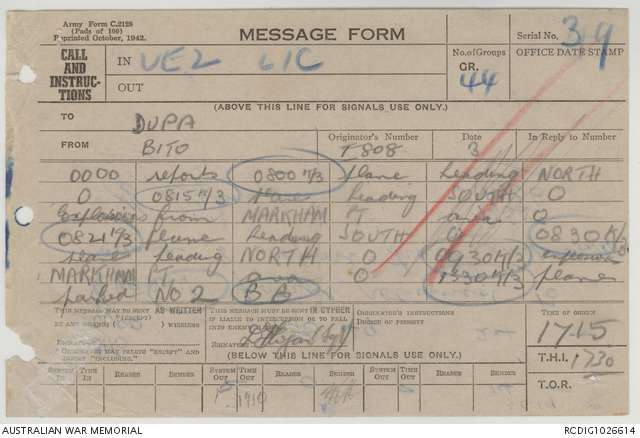 Army Form C.2128
(Pads of 100)
Reprinted October, 1942.
MESSAGE FORM
Serial No. 39
CALL AND INSTRUCTIONS
IN VEZ LIC
OUT
No. of Groups
GR. 44
OFFICE DATE STAMP
(ABOVE THIS LINE FOR SIGNALS USE ONLY.)
TO DUPA
FROM BITO
Originator's Number F808
Date 3
In Reply to Number
0000 reports 0800K/3 plane heading NORTH
0 0815K/3 heading SOUTH 0
Explosions from MARKHAM PT area 0
0821K/3 plane heading SOUTH 0 0830K/3
plane heading NORTH 0 0930K/3 explosion
MARKHAM PT area 0 1530K/3 planes
NO 2 BB
THIS MESSAGE MAY BE SENT AS WRITTEN
BY ANY MEANS WIRELESS
THIS MESSAGE MUST BE SENT IN CYPHER
IF LIABLE TO INTERCEPTION OR TO FALL
INTO ENEMY HANDS
ORIGINATOR'S INSTRUCTIONS
DEGREE OF PRIORITY
TIME OF ORIGIN
1715
(BELOW THIS LINE FOR SIGNALS USE ONLY.)
T.H.I. 1730
SYSTEM IN
TIME IN
READER
SENDER
SYSTEM OUT
TIME OUT
READER
SENDER
SYSTEM OUT
TIME OUT
READER
SENDER
T.O.R.
AUSTRALIAN WAR MEMORIAL
RCDIG1026614